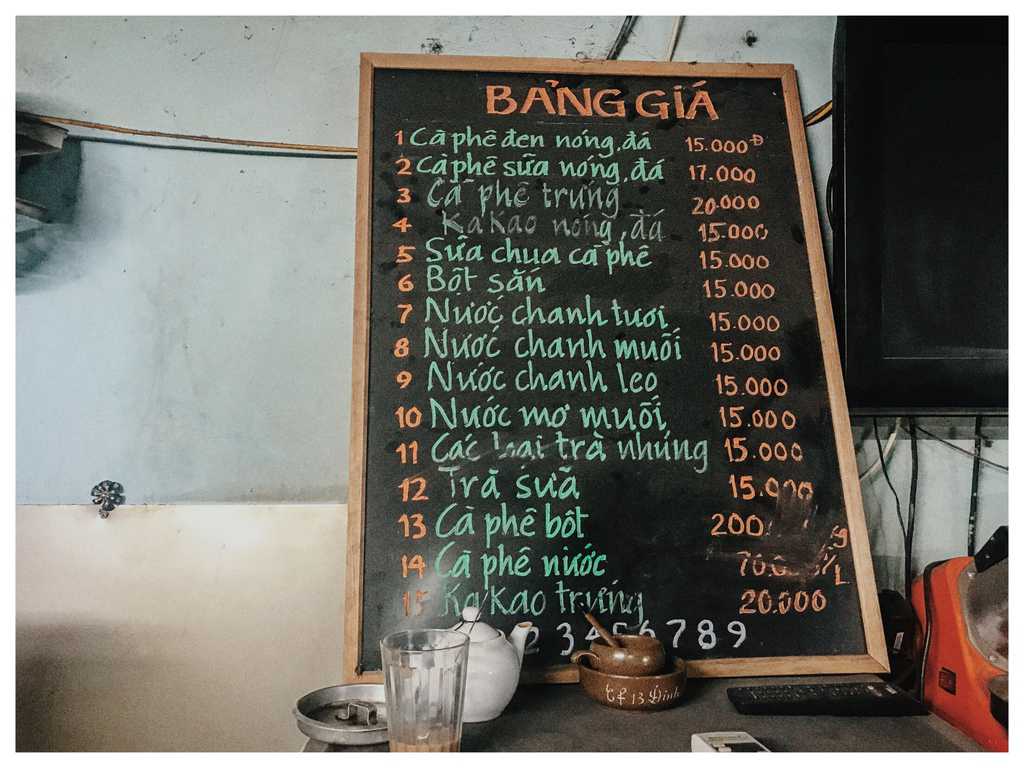 BẢNG GIÁ
1 Cà phê đen nóng, đá 15.000Đ
2 Cà phê sữa nóng, đá 17.000
3 Cà phê trứng 20.000
4 Ka Kao nóng, đá 15.000
5 Sữa chua cà phê 15.000
6 Bột sắn 15.000
7 Nước chanh tươi 15.000
8 Nước chanh muối 15.000
9 Nước chanh leo 15.000
10 Nước mơ muối 15.000
11 Các loại trà nhúng 15.000
12 Trà sữa 15.000
13 Cà phê bột 200
14 Cà phê nước /L
15 Ka Kao trứng 20.000
2 3 4 5 6 7 8 9
Cf 13 Đinh